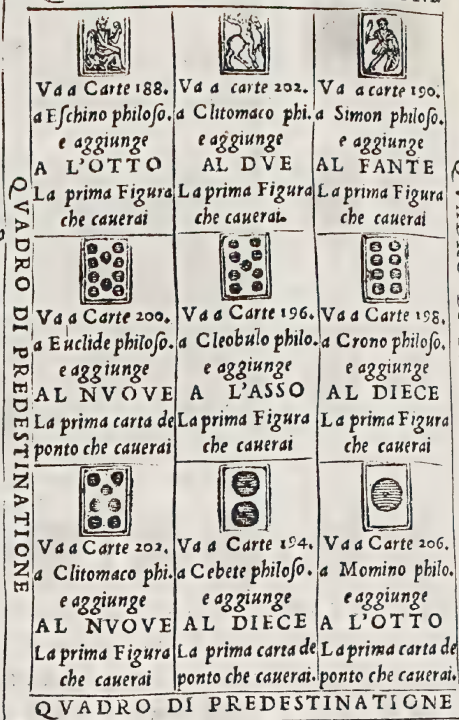 Va a Carte 188.
a Eſchino philoſo.
e aggiunge
A L'OTTO
La prima Figura
che cauerai
Va a carte 202.
a Clitomaco phi.
e aggiunge
AL DVE
La prima Figura
che cauerai.
Va a carte 190.
a Simon philoſo.
e aggiunge
AL FANTE
La prima Figura
che cauerai
Va a Carte 200.
a Euclide philoſo.
e aggiunge
AL NVOVE
La prima carta de
ponto che cauerai
Va a Carte 196.
a Cleobulo philo.
e aggiunge
A L'ASSO
La prima Figura
che cauerai
Va a Carte 198.
a Crono philoſo.
e aggiunge
AL DIECE
La prima Figura
che cauerai
Va a Carte 202.
a Clitomaco phi.
e aggiunge
AL NVOVE
La prima Figura
che cauerai
Va a Carte 194.
a Cebete philoſo.
e aggiunge
AL DIECE
La prima carta de
ponto che cauerai.
Va a Carte 206.
a Momino philo.
e aggiunge
A L'OTTO
La prima carta de
ponto che cauerai.
QVADRO DI PREDESTINATIONE
QVADRO DI PREDESTINATIONE